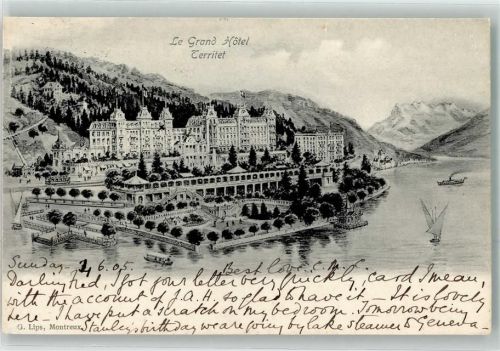 Le Grand Hôtel
Territet
Sunday. 4.6.05. Best love.
Darling, I got your letter very quickly, card I mean,
with the account of J.A.H. so glad to have it - It is lovely
here - I have put a scratch on my bedroom. Tomorrow being
G. Lips, Montreux. Stanley's birthday we are going by lake steamer to Geneva -